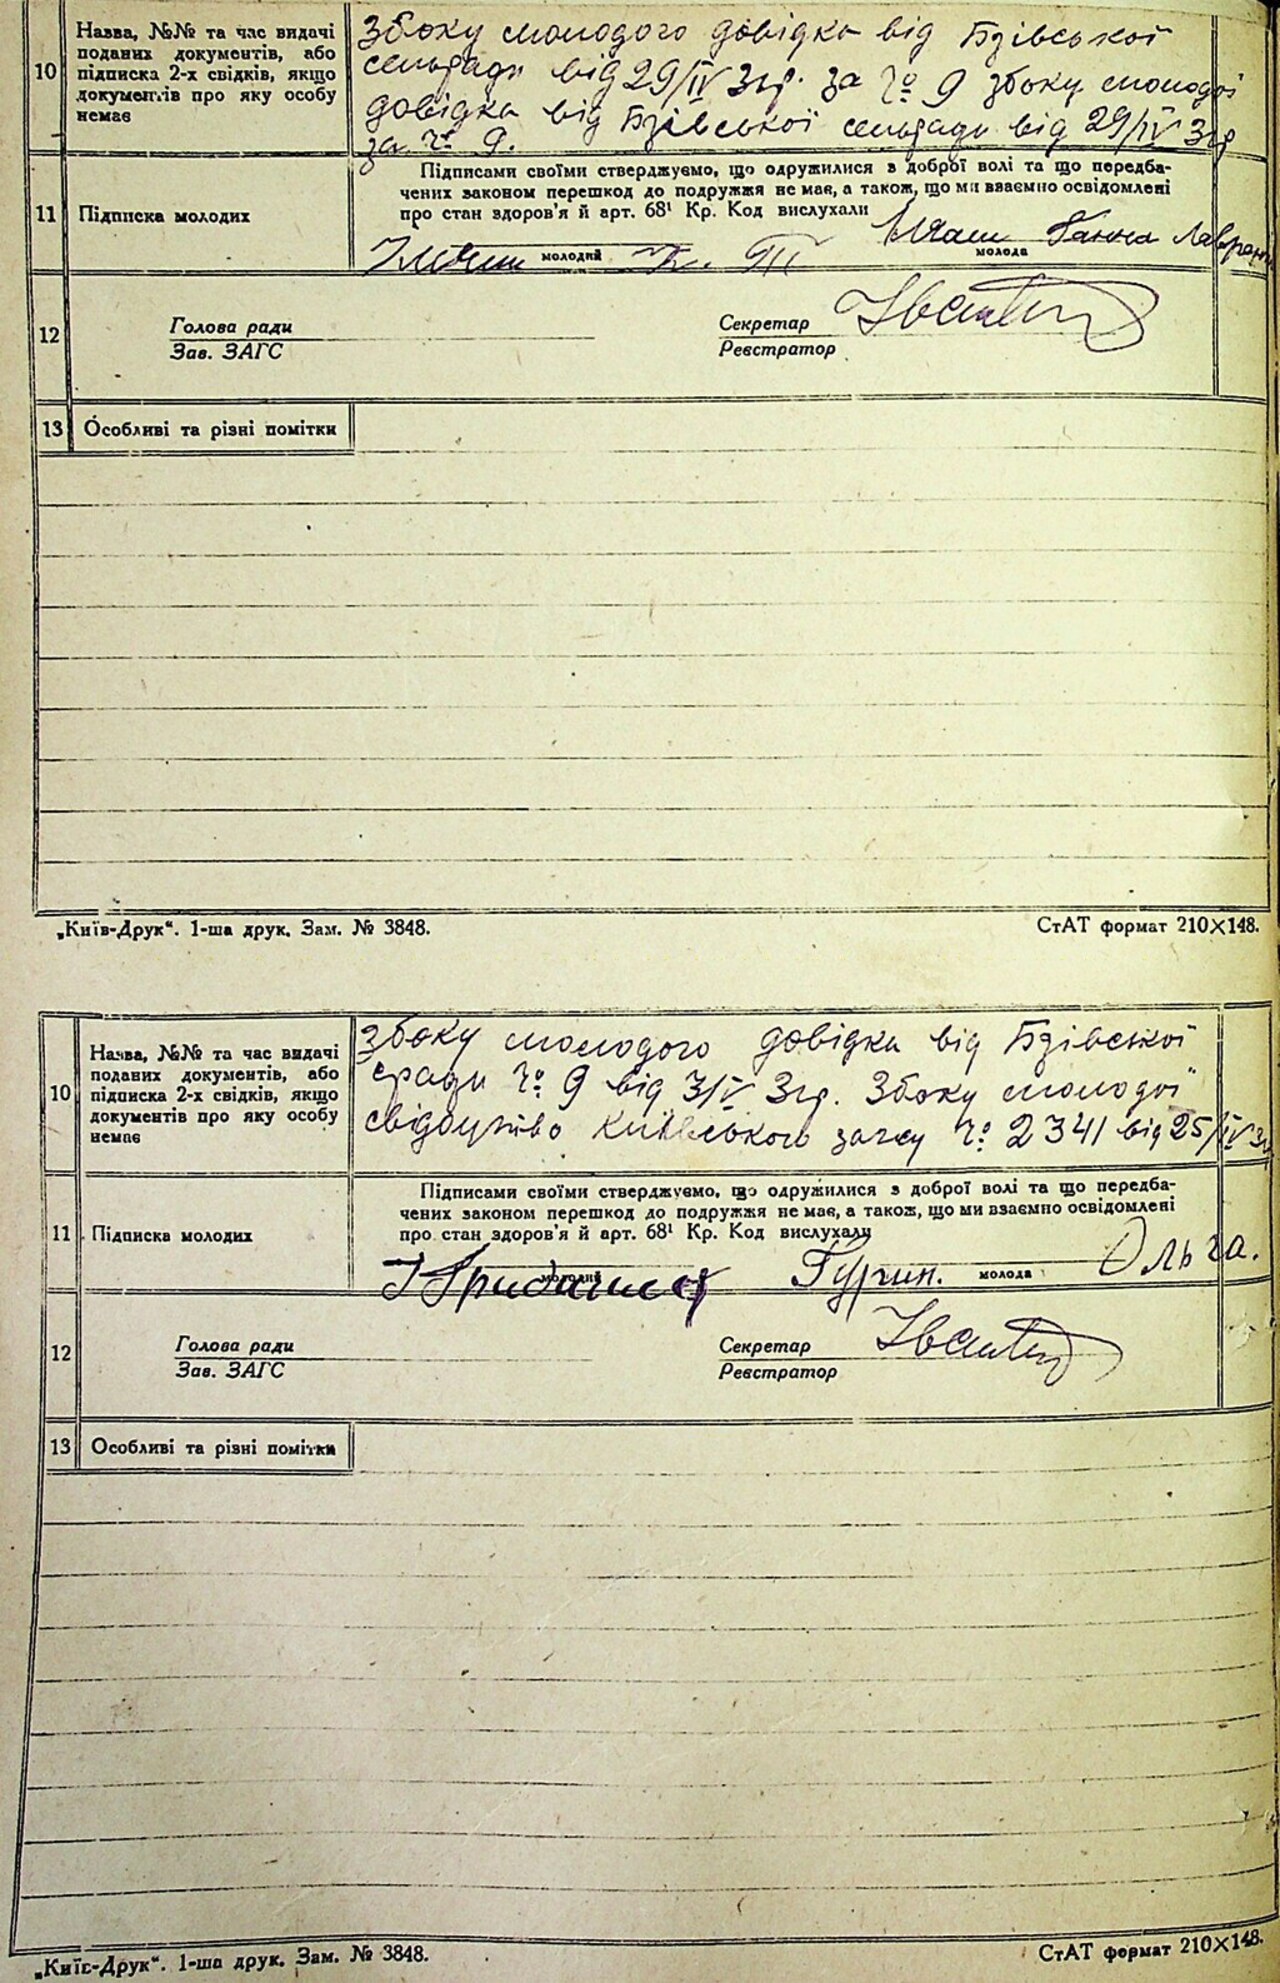 10
Назва, №№ та час видачі
поданих документів, або
підписка 2-х свідків, якщо
документів про яку особу
немає
Збоку молодого довідка від Бзівської
сельради від 29/IV 31р. за № 9 збоку молодої
довідка від Бзівської сельради від 29/IV 31р
за № 9.
11
Підписка молодих
Підписами своїми стверджуємо, що одружилися з доброї волі та що передба-
чених законом перешкод до подружжя не має, а також, що ми взаємно освідомлені
про стан здоров'я й арт. 68¹ Кр. Код вислухали
Ганна
молодий
молода
12
Голова ради
Зав. ЗАГС
Секретар
Реєстратор
13
Особливі та різні помітки
„Київ-Друк“. 1-ша друк. Зам. № 3848.
СтАТ формат 210×148.
10
Назва, №№ та час видачі
поданих документів, або
підписка 2-х свідків, якщо
документів про яку особу
немає
Збоку молодого довідка від Бзівської
сради № 9 від 3/IV 31р. Збоку молодої
свідоцтво Київського загсу № 2341 від 25/IV 31
11
Підписка молодих
Підписами своїми стверджуємо, що одружилися з доброї волі та що передба-
чених законом перешкод до подружжя не має, а також, що ми взаємно освідомлені
про стан здоров'я й арт. 68¹ Кр. Код вислухали
Ольга.
молодий
молода
12
Голова ради
Зав. ЗАГС
Секретар
Реєстратор
13
Особливі та різні помітки
„Київ-Друк“. 1-ша друк. Зам. № 3848.
СтАТ формат 210×148.